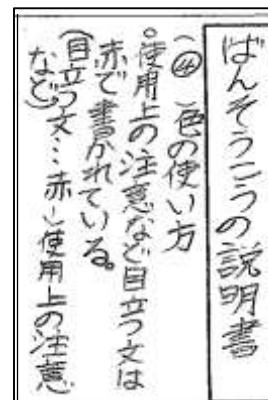 ばんそうこうの説明書
(④)色の使い方
○使用上の注意など目立つ文は
赤で書かれている。
(目立つ文…赤い使用上の注意
など)